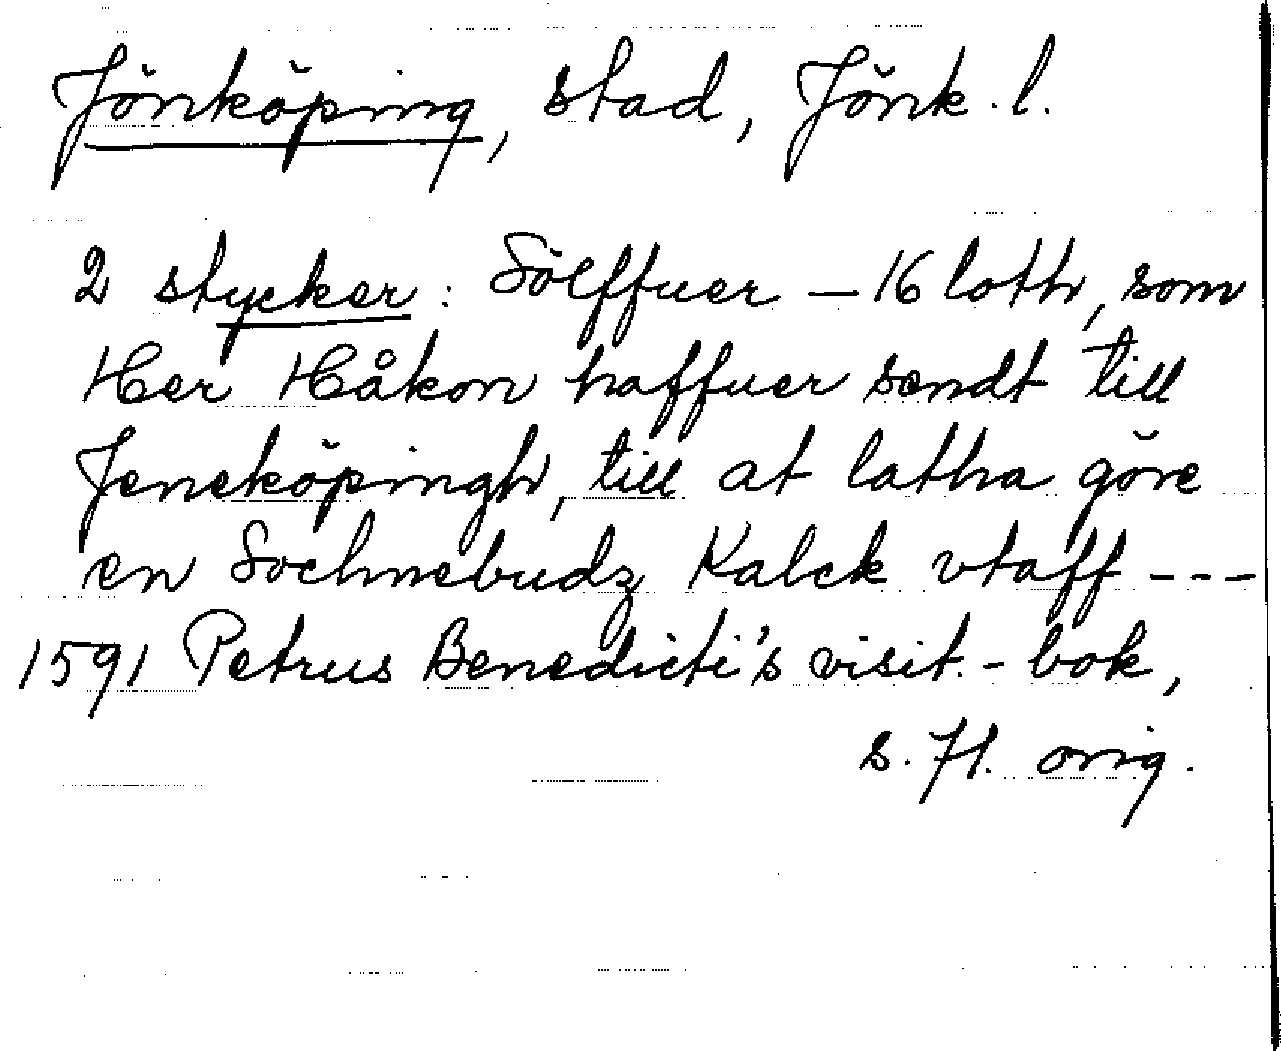 Jönköping, stad, Jönk. l.
2 stycker: Sölffuer - 16 loth, som
Her Håkon haffuer sendt till
Jeneköpingh, till at latha göre
en Sochnebudz Kalck vtaff ---
1591 Petrus Benedicti's visit.-bok,
s. 71. orig.